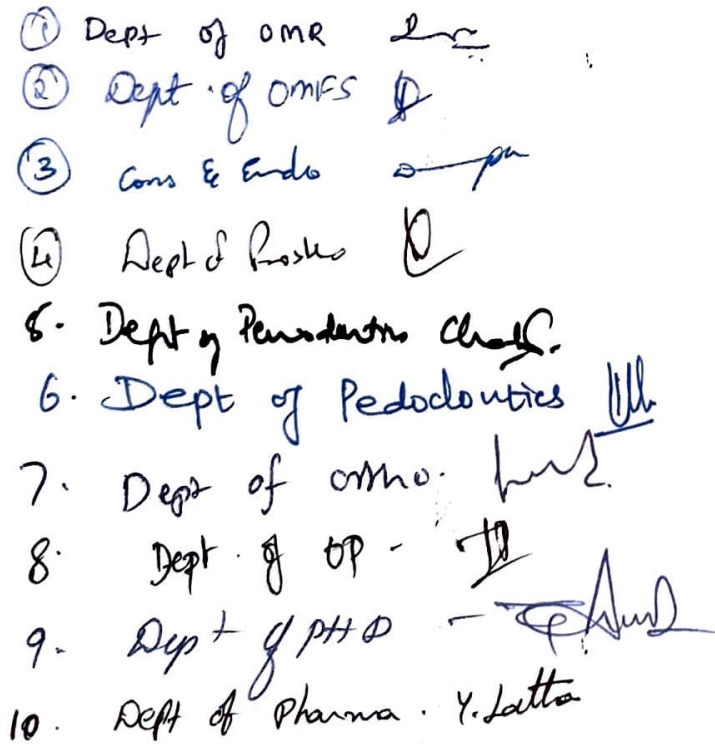 ① Dept of OMR
② Dept. of OMFS
③ Cons & Endo
④ Dept of Prostho
5. Dept of Periodontics
6. Dept of Pedodontics
7. Dept of ortho.
8. Dept. of OP -
9. Dept of PHD -
10. Dept of Pharma. Y. Latta